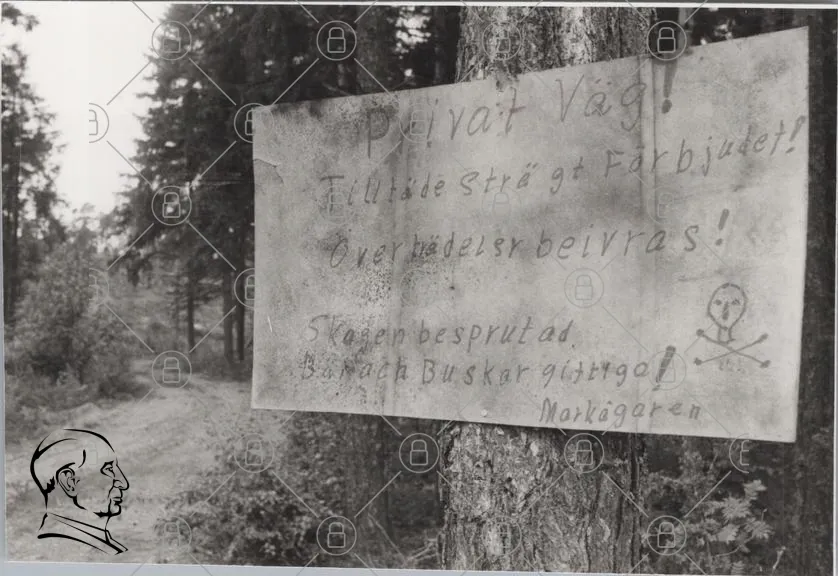 Privat Väg!
Tillträde Strägt Förbjudet!
Överträdelsr beivras!
Skogen besprutad
Bär ach Buskar giftiga!
Markägaren